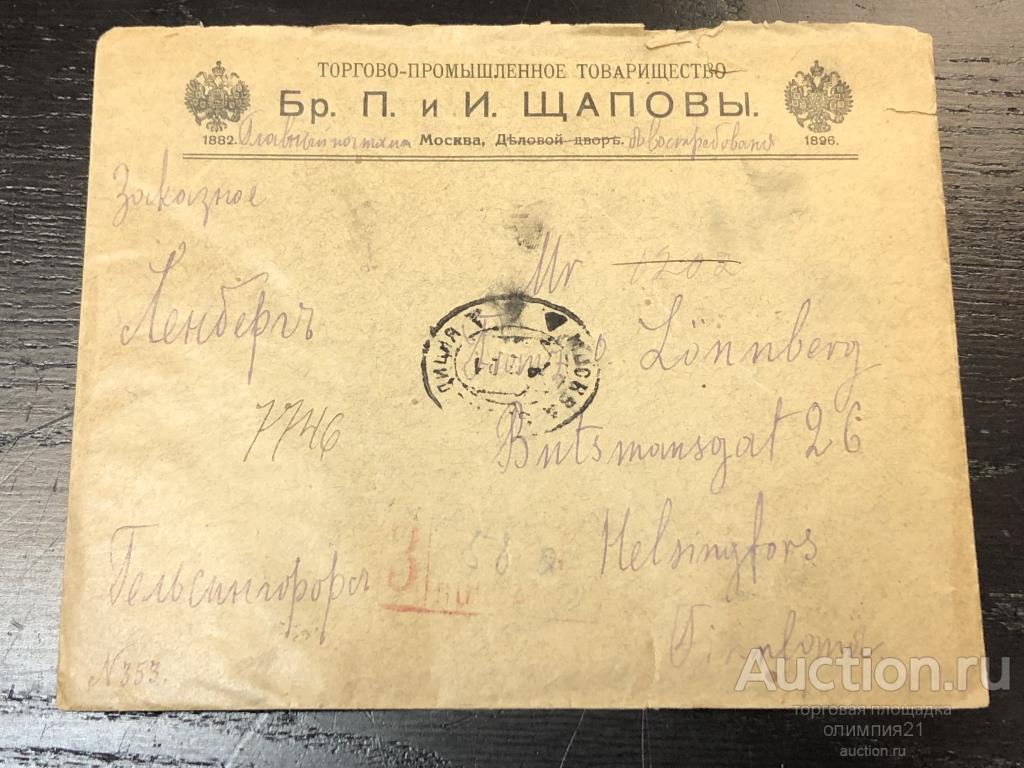 ТОРГОВО-ПРОМЫШЛЕННОЕ ТОВАРИЩЕСТВО
Бр. П. и И. ЩАПОВЫ.
1882. Главный почтамт Москва, Дѣловой дворъ. До востребования 1896.
Заказное
Mr 0202
Ленбергъ
Lönnberg
МОСКВА
7746
Butsmansgat 26
Helsingfors
Гельсингфорсъ
З
58
Finland
N 353.
Auction.ru
торговая площадка
олимпия21
auction.ru